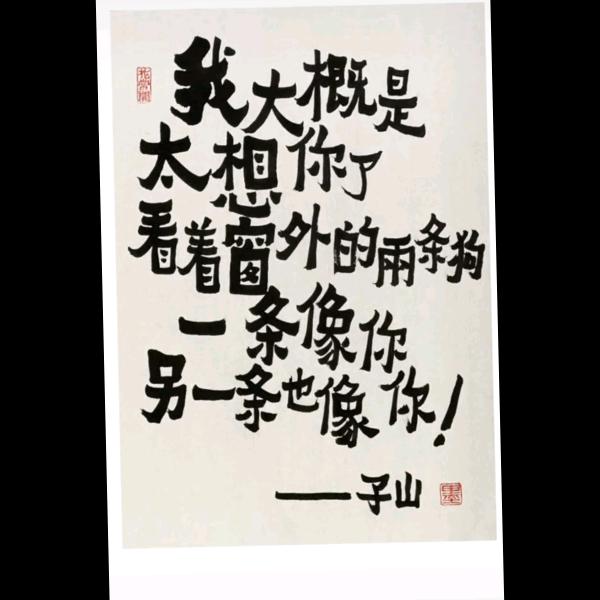 我大概是
太想你了
看着窗外的兩条狗
一条像你
另一条也像你!
——子山